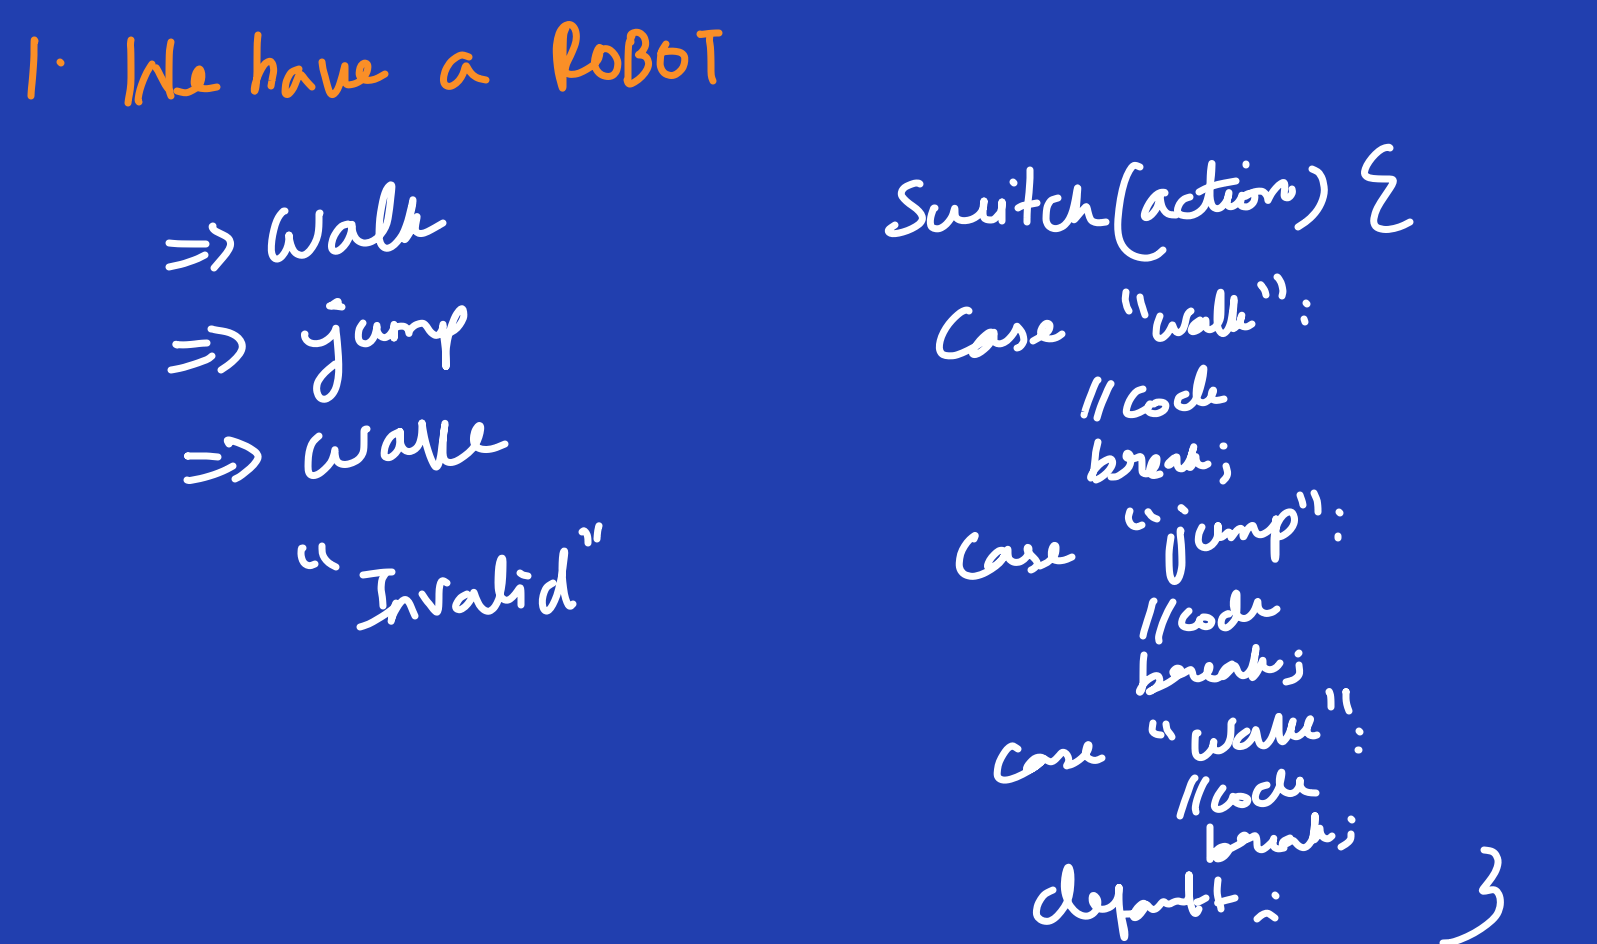 1. We have a ROBOT
=> walk
=> jump
=> wave
"Invalid"
Switch(action) {
Case "walk":
//code
break;
Case "jump":
//code
break;
Case "wave":
//code
break;
default:
}